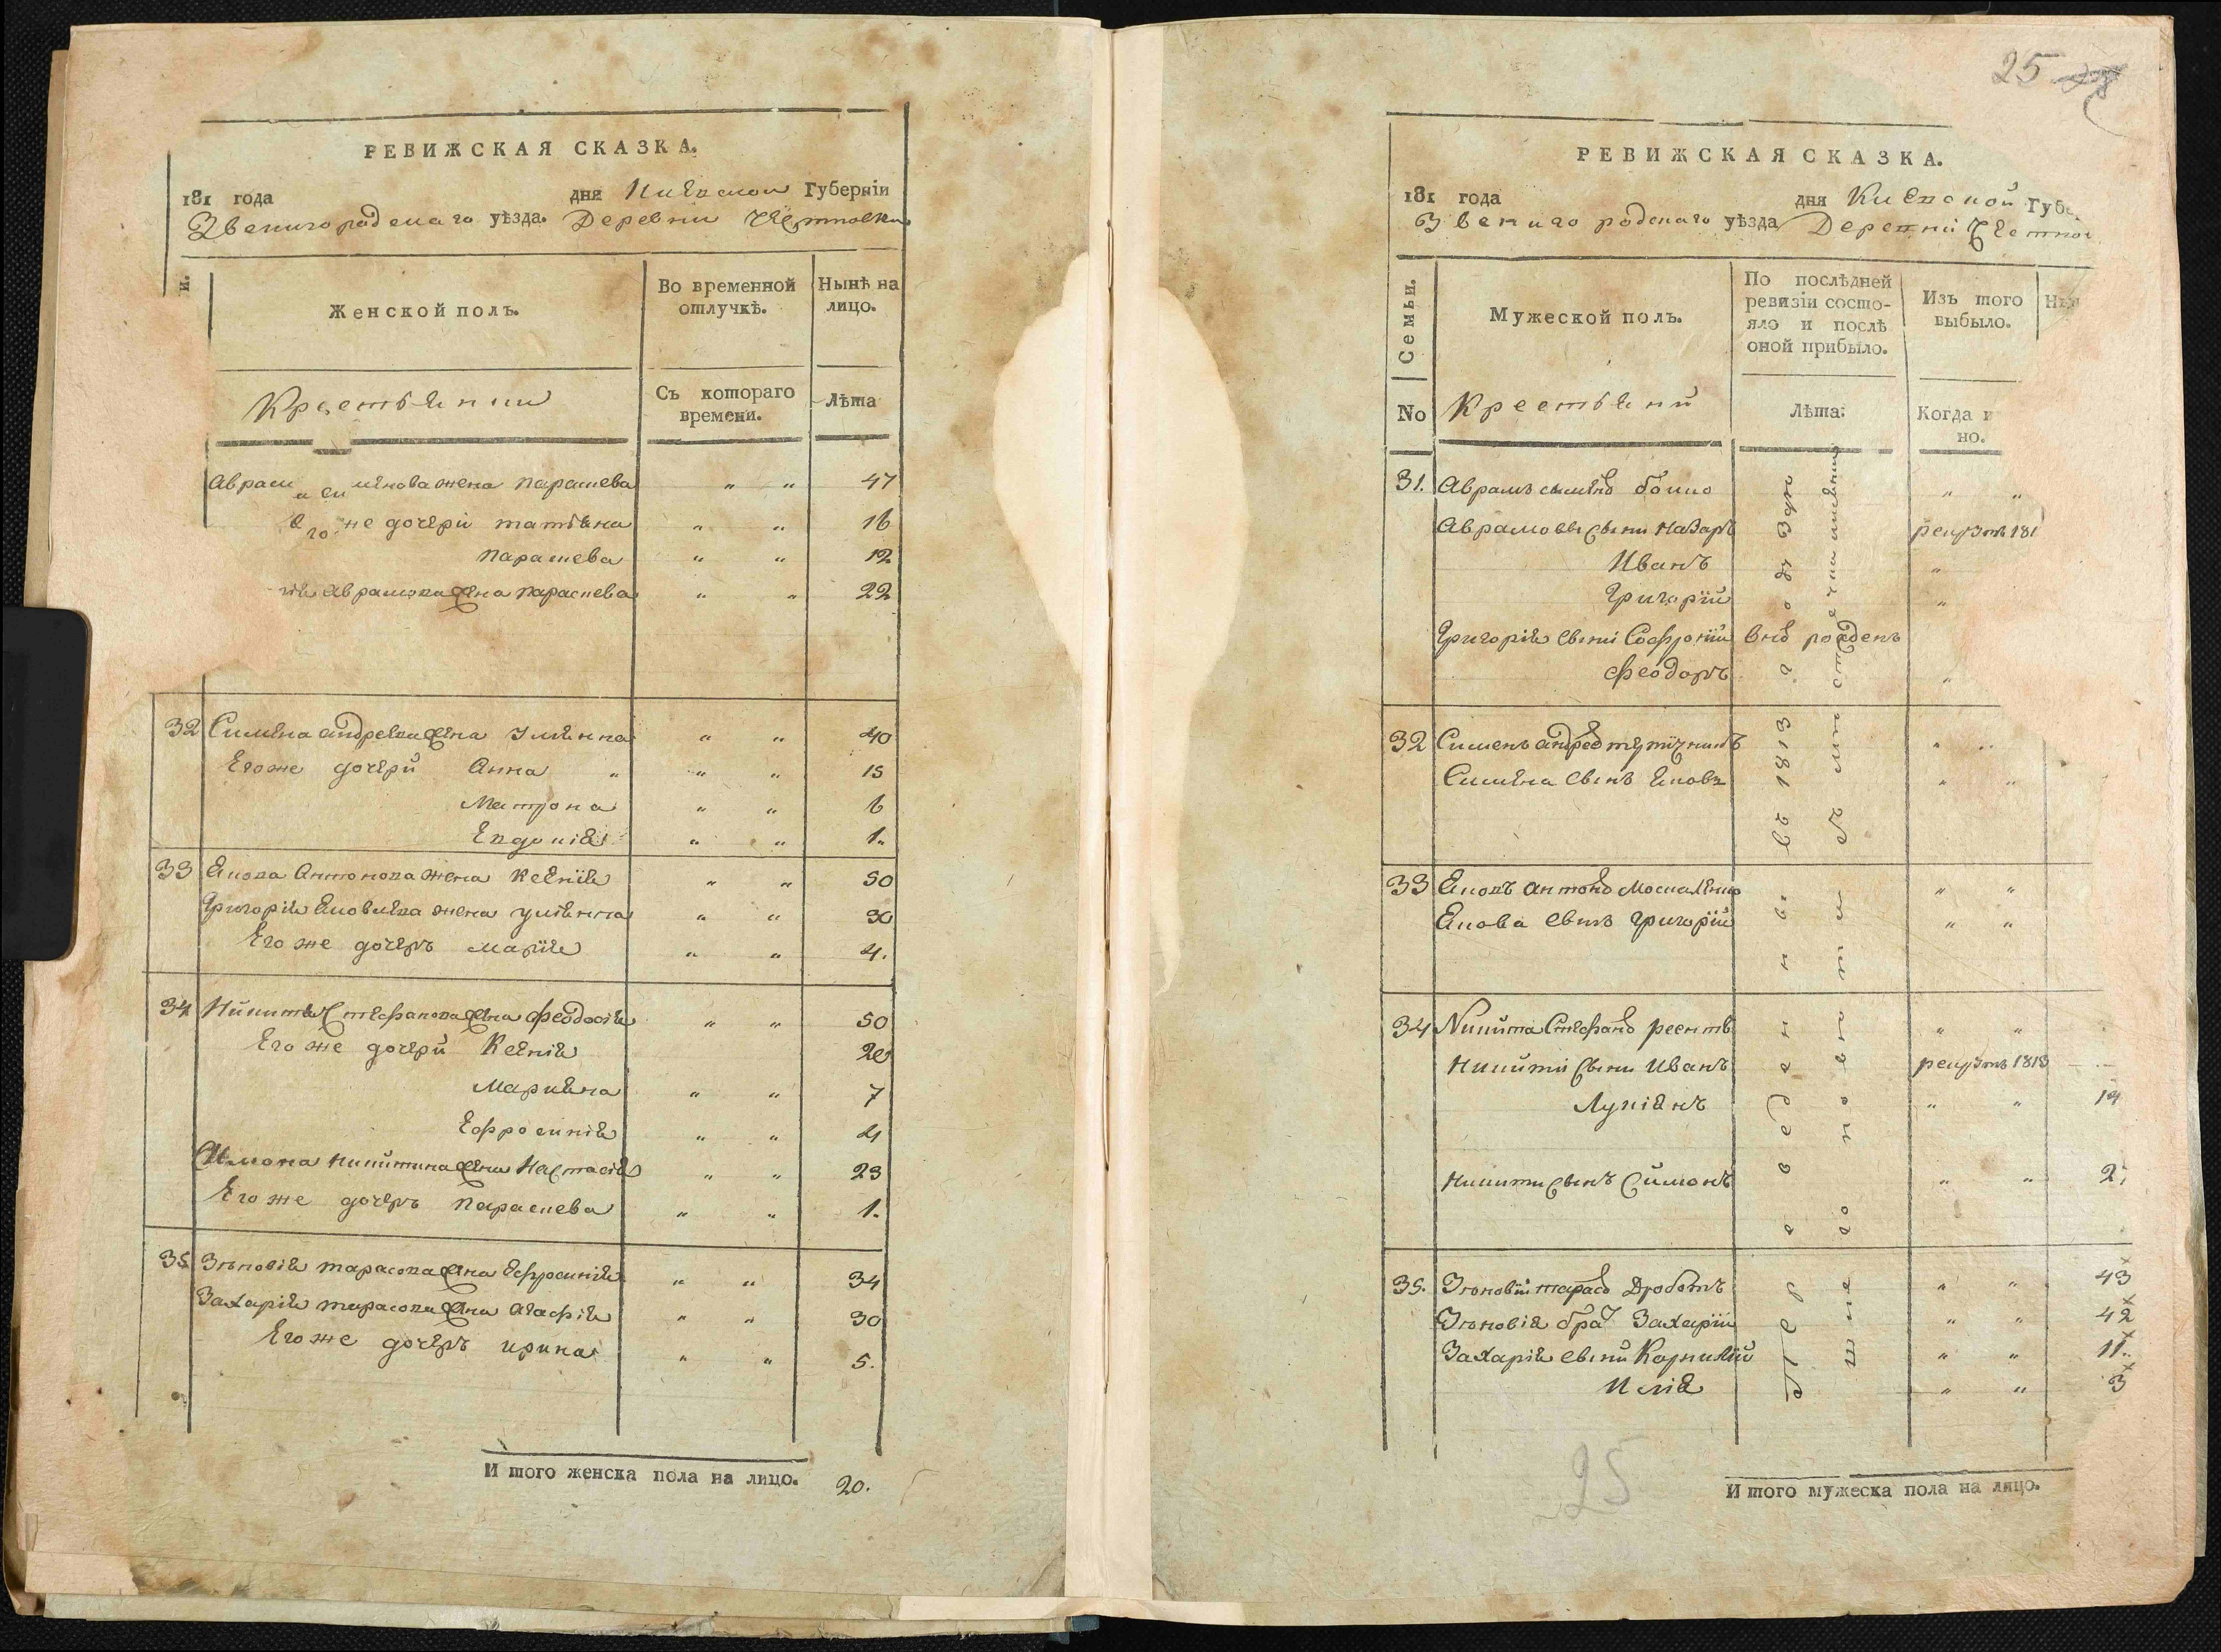 РЕВИЖСКАЯ СКАЗКА.
181 года дня Киевской Губерніи
Звенигородскаго уѣзда. Деревни
и.
Женской полъ.
Во временной отлучкѣ.
Нынѣ на лицо.
Крестьянки
Съ котораго времени.
Лѣта
жена Параскева " " 47
дочери татьяна " " 16
Параскева " " 12
Аврамова жена параскева " " 22
32 Симена андреева жена Ульянна " " 40
Его же дочери Анна " " " 15
Матрона " " 6
Евдокія " " 1.
33 Якова Антонова жена Ксенія " " 50
Григорія Яковлева жена ульянна " " 30
Его же дочеръ марія " " 4.
34 Никиты Стефанова жена феодосія " " 50
Его же дочери Ксенія 20
Маріяна " " 7
Ефросинія " " 4
Симона никитина жена Настасія " " 23
Его же дочеръ параскева " " 1.
35 Зѣновія тарасова жена Ефросинія " " 34
Захарія тарасова жена агафія " " 30
Его же дочеръ ирина " " 5.
И того женска пола на лицо. 20.
25
РЕВИЖСКАЯ СКАЗКА.
181 года дня Киевской Губе
Звенигородскаго уѣзда Деревни
Семьи.
Мужеской полъ.
По послѣдней ревизіи состояло и послѣ оной прибыло.
Изъ того выбыло.
Ны
No
Крестьяни
Лѣта.
Когда и
но.
31. Аврамъ бойко " "
Аврамовы сыни Назаръ рекрутъ 181
Иванъ "
Григорій "
Григорія сыни Софроній внов рожденъ
феодоръ "
32 Сименъ андреев " "
Симена сынъ Яковъ " "
33 Яковъ антонов Москаленко " "
Якова сынъ григорій " "
34 Никита Стефанов " "
Никити сыни Иванъ рекрутъ 1813
Лукіянъ " " 14
Никити сынъ Симонъ " " 2
35. Зѣновій тарасов Дроботъ " " 43
Зѣновія брат Захарій " " 42
Захарія сыни Корнилій " " 11.
Илія " " 3
25
И того мужеска пола на лицо.